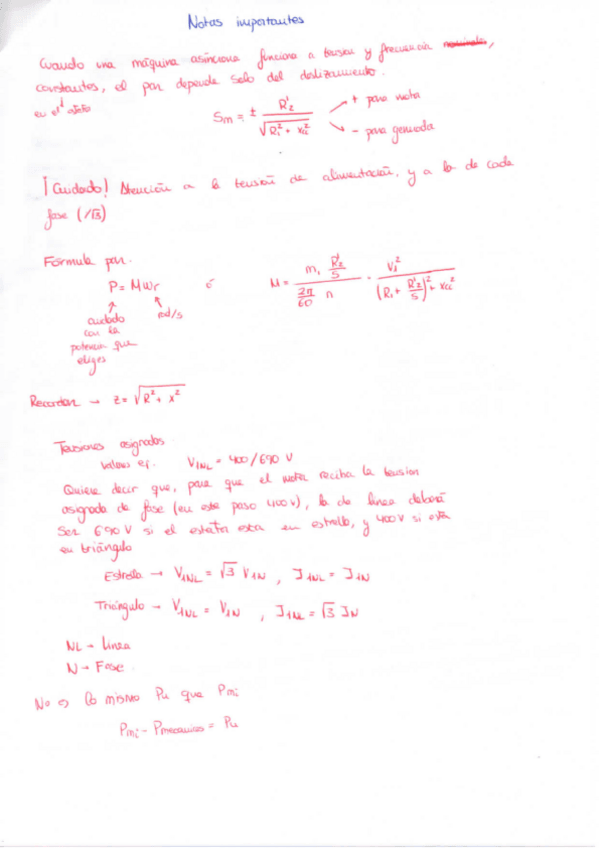 Notas importantes
Cuando una máquina asíncrona funciona a tension y frecuencia nominales,
constantes, el par depende solo del deslizamiento.
en el
Sm = ± R'2 / √(R1² + Xcc²) → + para motor
→ - para generado
¡Cuidado! Atención a la tensión de alimentación, y a la de cada
fase (/√3)
Fórmula par.
P = M ωr ó M = (m1 R'2/S) / (2π/60 n) · V1² / ((R1 + R'2/S)² + Xcc²)
cuidado rad/s
con la
potencia que
eliges
Recordar → Z = √(R² + X²)
Tensiones asignadas
Valores ej. V1NL = 400/690 V
Quiere decir que, para que el motor reciba la tension
asignada de fase (en este paso 400 V), la de linea deberá
ser 690 V si el estator esta en estrella, y 400 V si está
en triángulo
Estrella → V1NL = √3 V1N , I1NL = I1N
Triángulo → V1NL = V1N , I1NL = √3 IN
NL → Linea
N → Fase.
No es lo mismo Pu que Pmi
Pmi - Pmecanicas = Pu